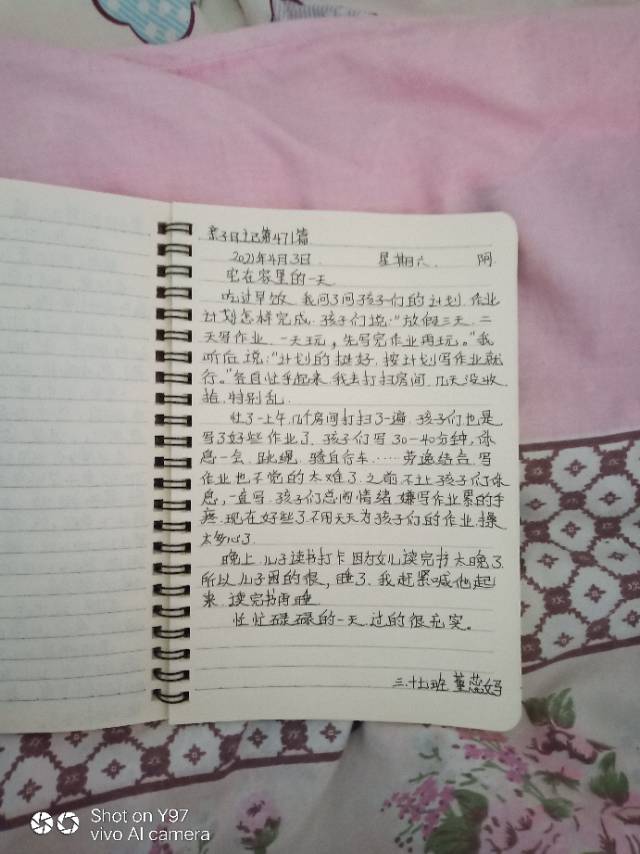 亲子日记第471篇
2021年4月3日 星期六 阴
宅在家里的一天
吃过早饭,我问了问孩子们的计划,作业
计划怎样完成.孩子们说:"放假三天,二
天写作业,一天玩,先写完作业再玩。"我
听后说:"计划的挺好,按计划写作业就
行。"各自忙乎起来.我去打扫房间,几天没收
拾,特别乱.
忙了一上午,几个房间打扫了一遍.孩子们也是
写了好些作业了.孩子们写30—40分钟,休
息一会.跳绳,骑自行车……劳逸结合.写
作业也不觉的太难了.之前不让孩子们休
息,一直写.孩子们总闹情绪.嫌写作业累的手
疼.现在好些了.不用天天为孩子们的作业操
太多心了.
晚上,儿子读书打卡.因为女儿读完书太晚了.
所以儿子困的很,睡了.我赶紧喊他起
来.读完书再睡.
忙忙碌碌的一天.过的很充实。
三.十七班 董蕊妈
Shot on Y97
vivo AI camera